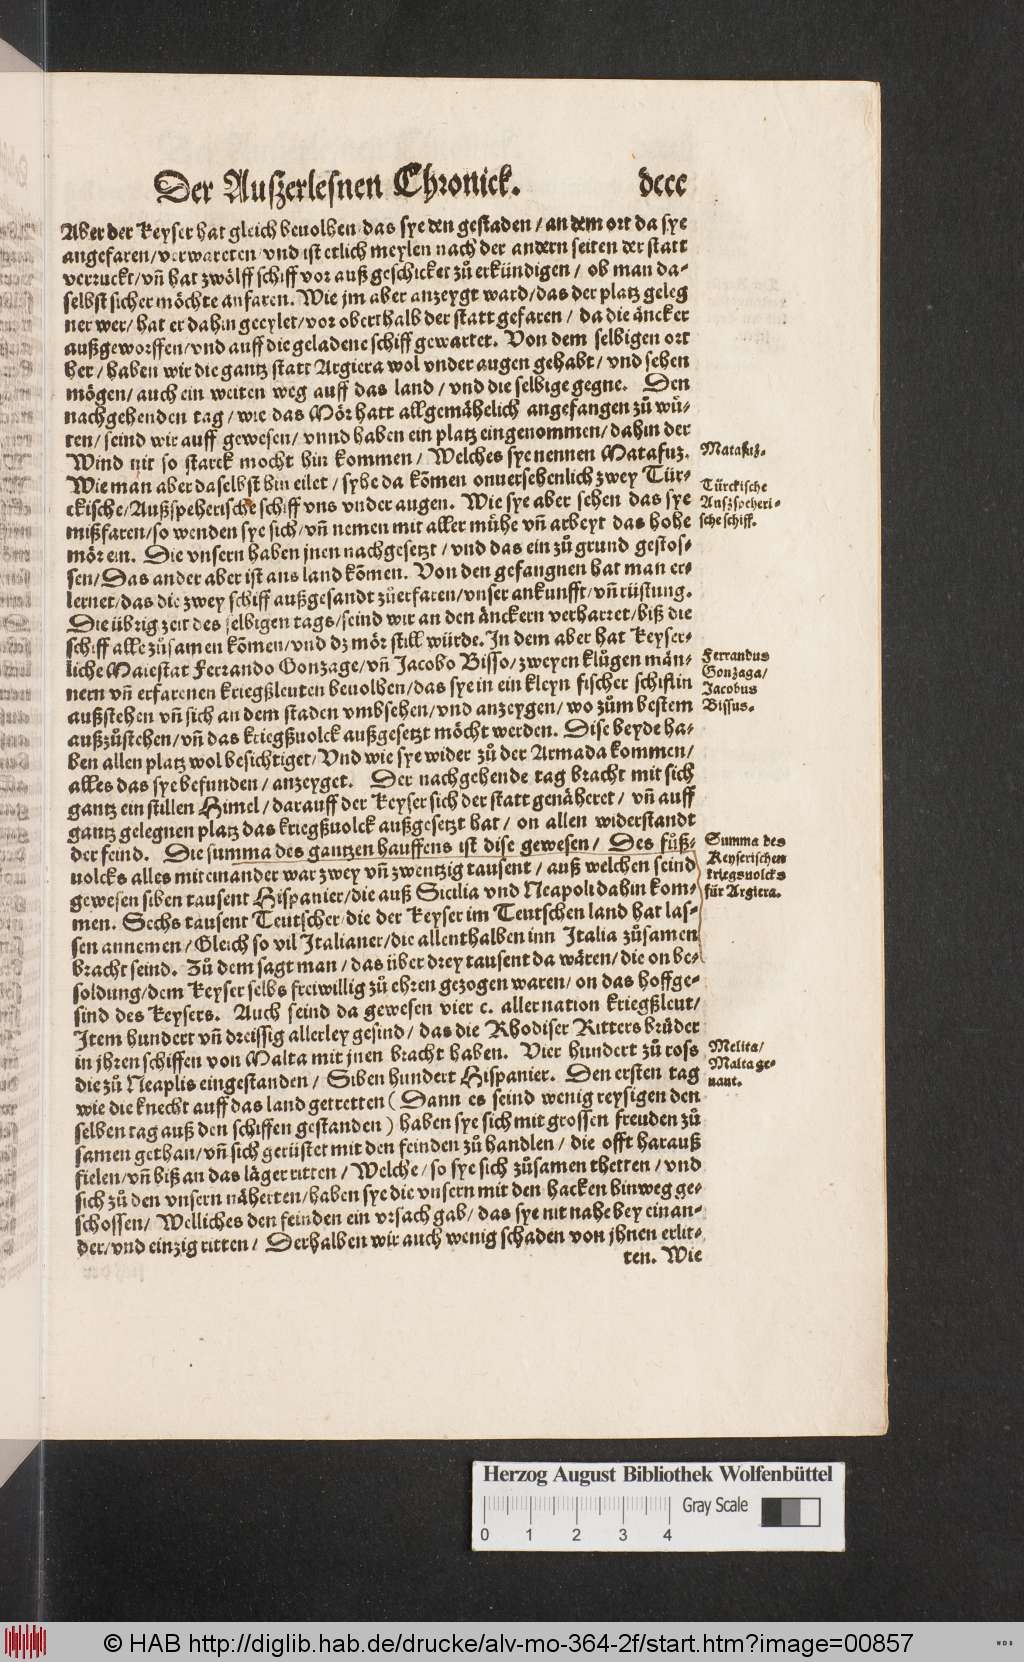 Der Außerlesnen Chronick. dccc
Aber der Keyser hat gleich beuolhen das sye den gestaden / an dem ort da sye
angefaren / verwareten / vnd ist etlich meylen nach der andern seiten der statt
verruckt / vñ hat zwölff schiff vor auß geschicket zů erkündigen / ob man da-
selbst sicher möchte anfaren. Wie jm aber anzeygt ward / das der platz geleg
ner wer / hat er dahin geeylet / vor oberthalb der statt gefaren / da die äncker
außgeworffen / vnd auff die geladene schiff gewartet. Von dem selbigen ort
her / haben wir die gantz statt Argiera wol vnder augen gehabt / vnd sehen
mögen / auch ein weiten weg auff das land / vnd die selbige gegne. Den
nachgehenden tag / wie das Mör hatt allgemähelich angefangen zů wü-
ten / seind wir auff gewesen / vnnd haben ein platz eingenommen / dahin der
Wind nit so starck mocht hin kommen / Welches sye nennen Matafuz.
Matafuz.
Wie man aber daselbst hin eilet / syhe da kömen onuersehenlich zwey Tür-
ckische / Außspeherische schiff vns vnder augen. Wie sye aber sehen das sye
Türckische
Auszspeheri-
sche schiff.
mißfaren / so wenden sye sich / vñ nemen mit aller mühe vñ arbeyt das hohe
mör ein. Die vnsern haben jnen nachgesetzt / vnd das ein zů grund gestos-
sen / Das ander aber ist ans land kömen. Von den gefangnen hat man er-
lernet / das die zwey schiff außgesandt zů erfaren / vnser ankunfft / vñ rüstung.
Die übrig zeit des selbigen tags / seind wir an den änckern verharret / biß die
schiff alle zůsamen kömen / vnd dz mör still würde. In dem aber hat Keyser-
liche Maiestat Ferrando Gonzage / vñ Jacobo Bisso / zweyen klůgen män-
Ferrandus
Gonzaga /
Jacobus
Bissus.
nern vñ erfarenen kriegßleuten beuolhen / das sye in ein kleyn fischer schiflin
außstehen vñ sich an dem staden vmbsehen / vnd anzeygen / wo zům bestem
außzůstehen / vñ das kriegßuolck außgesetzt möcht werden. Dise beyde ha-
ben allen platz wol besichtiget / Vnd wie sye wider zů der Armada kommen /
alles das sye befunden / anzeyget. Der nachgehende tag bracht mit sich
gantz ein stillen Himel / darauff der Keyser sich der statt genäheret / vñ auff
gantz gelegnen platz das kriegßuolck außgesetzt hat / on allen widerstandt
der feind. Die summa des gantzen hauffens ist dise gewesen / Des fůß-
Summa des
Keyserischen
kriegsuolcks
für Argiera.
uolcks alles miteinander war zwey vñ zwentzig tausent / auß welchen seind
gewesen siben tausent Hispanier / die auß Sicilia vnd Neapoli dahin kom-
men. Sechs tausent Teutscher / die der Keyser im Teutschen land hat las-
sen annemen / Gleich so vil Italianer / die allenthalben inn Italia zůsamen
bracht seind. Zů dem sagt man / das über drey tausent da wären / die on be-
soldung / dem Keyser selbs freiwillig zů ehren gezogen waren / on das hoffge-
sind des Keysers. Auch seind da gewesen vier c. aller nation kriegßleut /
Item hundert vñ dreissig allerley gesind / das die Rhodiser Ritters brůder
in jhren schiffen von Malta mit jnen bracht haben. Vier hundert zů ross
Melita /
Malta ge-
nant.
die zů Neaplis eingestanden / Siben hundert Hispanier. Den ersten tag
wie die knecht auff das land getretten ( Dann es seind wenig reysigen den
selben tag auß den schiffen gestanden ) haben sye sich mit grossen freuden zů
samen gethan / vñ sich gerüstet mit den feinden zů handlen / die offt harauß
fielen / vñ biß an das läger ritten / Welche / so sye sich zůsamen thetten / vnd
sich zů den vnsern näherten / haben sye die vnsern mit den hacken hinweg ge-
schossen / Welliches den feinden ein vrsach gab / das sye nit nahe bey einan-
der / vnd einzig ritten / Derhalben wir auch wenig schaden von jhnen erlit-
ten. Wie
Herzog August Bibliothek Wolfenbüttel
Gray Scale
0 1 2 3 4
© HAB http://diglib.hab.de/drucke/alv-mo-364-2f/start.htm?image=00857